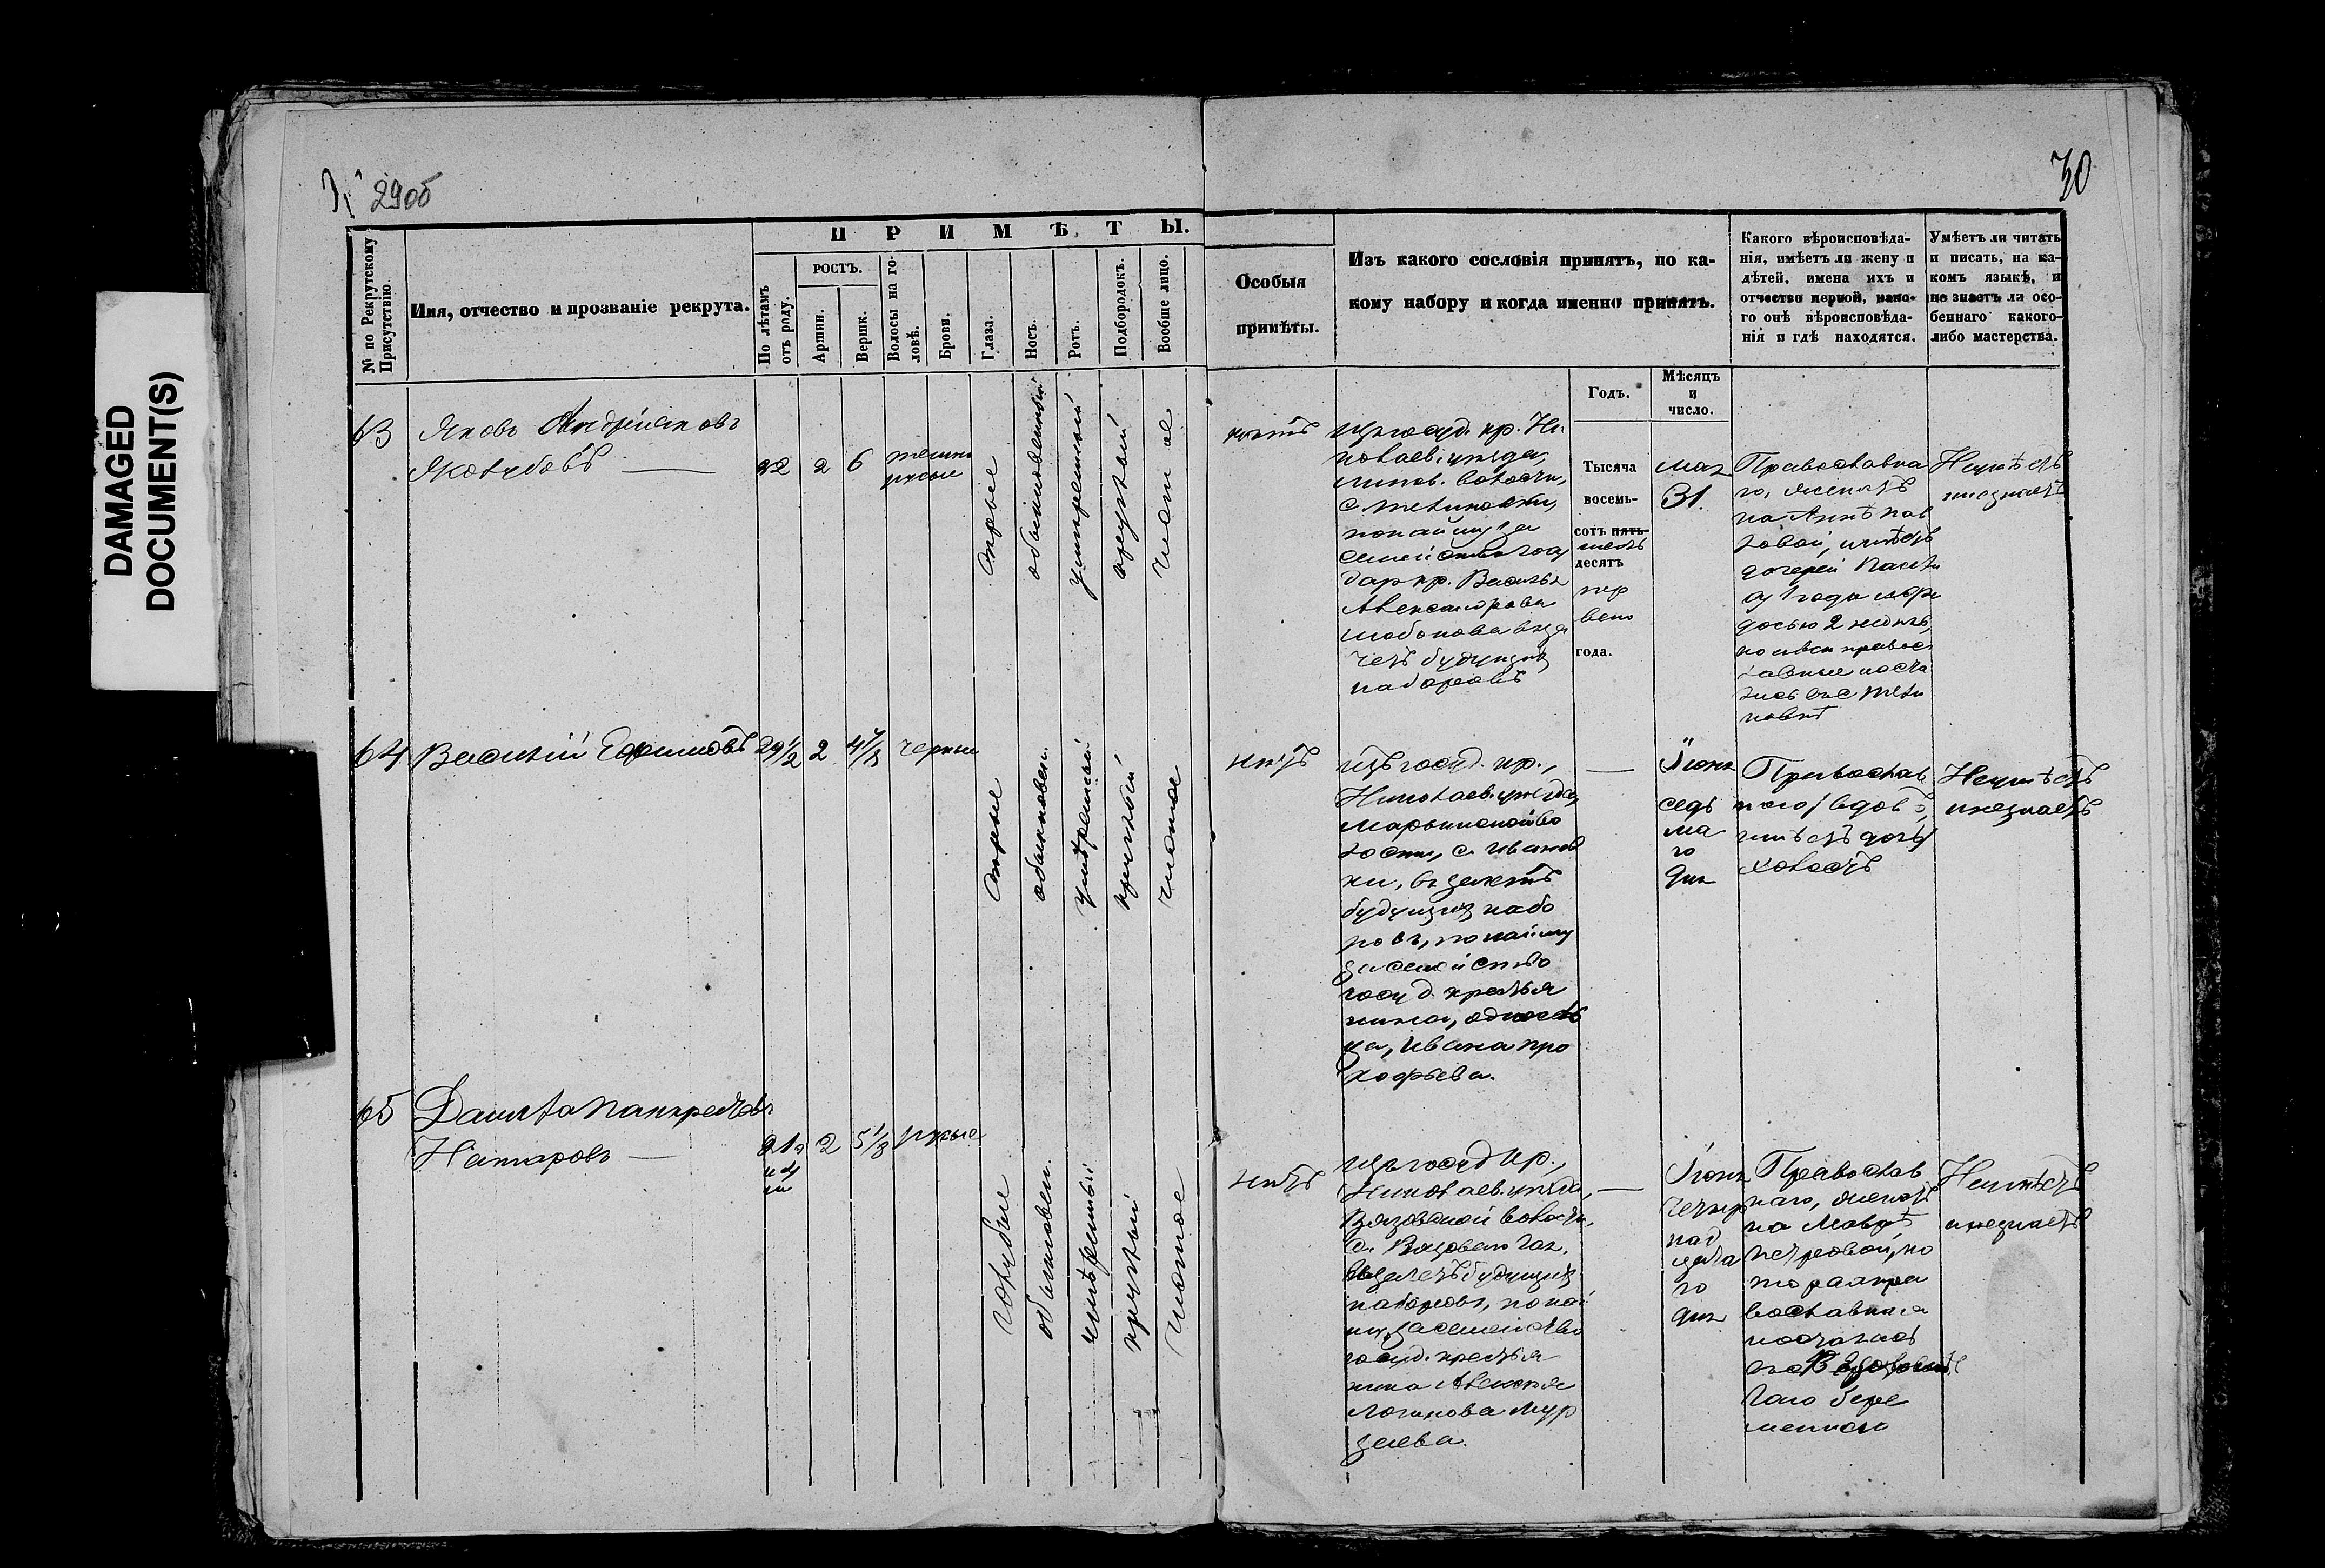 DAMAGED
DOCUMENT(S)
29об
30
№ по Рекрутскому Присутствію.
Имя, отчество и прозваніе рекрута.
ПРИМѢТЫ.
По лѣтамъ отъ роду.
РОСТЪ.
Аршин.
Вершк.
Волосы на головѣ.
Брови.
Глаза.
Носъ.
Ротъ.
Подбородокъ.
Вообще лицо.
Особыя
примѣты.
Изъ какого сословія принятъ, по ка-
кому набору и когда именно принятъ.
Годъ.
Мѣсяцъ
и
число.
Какого вѣроисповѣда-
нія, имѣетъ ли жену и
дѣтей, имена ихъ и
отчество первой, како-
го онѣ вѣроисповѣда-
нія и гдѣ находятся.
Умѣетъ ли читать
и писать, на ка-
комъ языкѣ, и
не знаетъ ли осо-
беннаго какого-
либо мастерства.
63
Яковъ Андріяновъ
22
2
6
темно
русые
сѣрые
обыкновенный
умѣренный
круглый
чистое
нѣтъ
изъ госуд. кр. Ни
колаев. уѣзда,
волости,
по найму за
семейство госу
дар кр. Василья
Александрова
въ за
четъ будущихъ
наборовъ
Тысяча
восемь-
сотъ пять-
шесть
десятъ
пер
ваго
года.
мая
31.
Православна
го, женатъ
на Аннѣ Пав
ловой, имѣетъ
дочерей
1 года
2 недѣль,
православ
Неумѣетъ
и незнаетъ
64
Василій Ефимовъ
29 1/2
2
4 7/8
черные
сѣрые
обыкновен.
умѣренный
круглый
чистое
нѣтъ
изъ госуд. кр.,
Николаев. уѣзда,
Марьинской во
лости, с. Иванов
ки, въ зачетъ
будущихъ набо
ровъ, по найму
за семейство
госуд. крестья
нина,
Ивана Про
кофьева.
Іюня
седь
ма
го
дня
Православ
наго, вдовъ,
Неумѣетъ
и незнаетъ
65
Данила Панкратовъ
Натаровъ
21 1/2
2
5 1/8
русые
голубые
обыкновен.
умѣренный
круглый
чистое
нѣтъ
изъ госуд кр.,
Николаев. уѣзда,
Вязовской волости,
с. Вязоваго Гая,
въ зачетъ будущихъ
наборовъ, по най
му за семейство
госуд. крестья
нина Алексѣя
Логинова Мур
заева.
Іюня
четыр
над
цата
го
дня
Православ
наго, женатъ
на Мавре
Петровой, ко
торая пра
вославная
осталась
въ с. Вязовомъ
Гаю бере
менною
Неумѣетъ
и незнаетъ